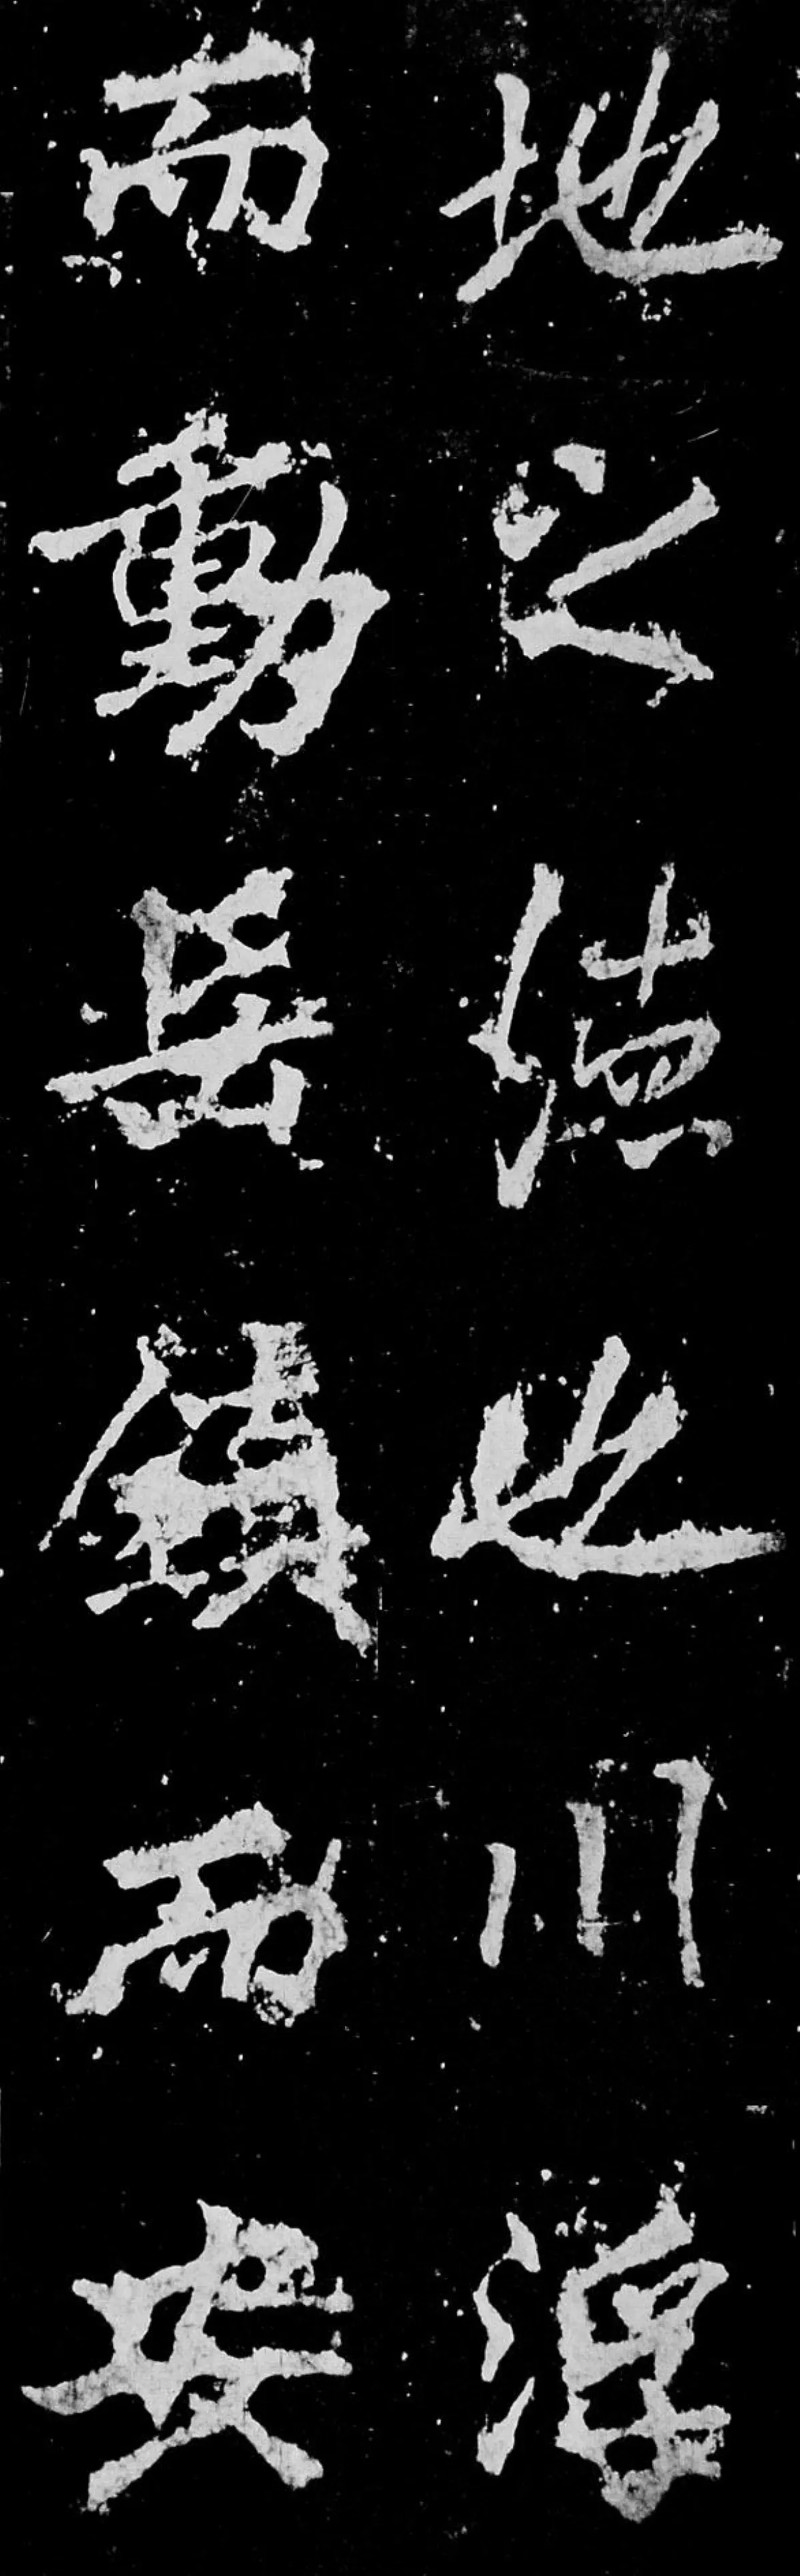 地之德也川浮
而動岳鎮而安